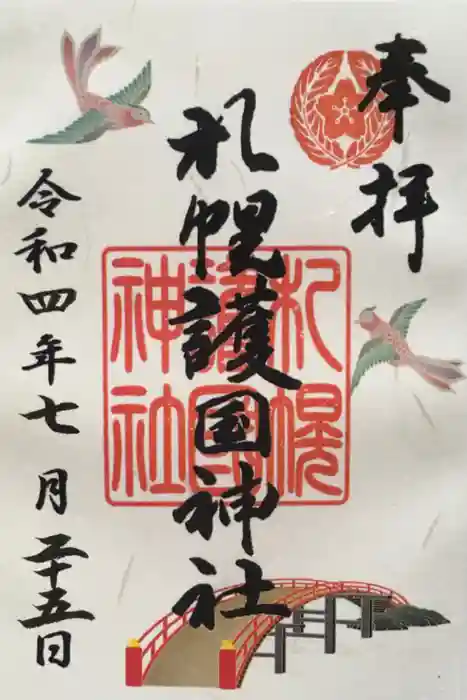 奉拝
札幌護国神社
札幌護国神社
令和四年七月二十五日